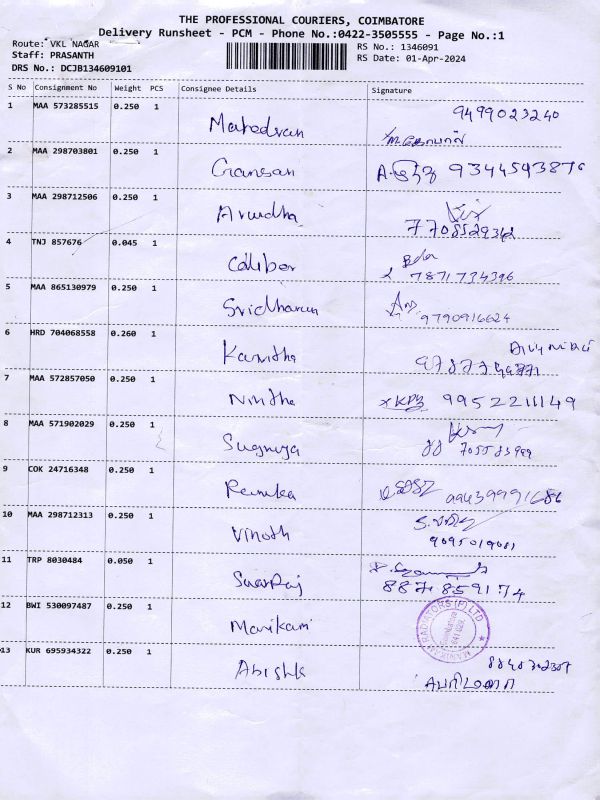 THE PROFESSIONAL COURIERS, COIMBATORE
Delivery Runsheet - PCM - Phone No.:0422-3505555 - Page No.:1
Route: VKL NAGAR
RS No.: 1346091
Staff: PRASANTH
RS Date: 01-Apr-2024
DRS No.: DCJB134609101
S No Consignment No Weight PCS Consignee Details Signature
1 MAA 573285515 0.250 1 Mahedran 9499023240
2 MAA 298703801 0.250 1 Ganesan 9344593876
3 MAA 298712506 0.250 1 Arudha
4 TNJ 857676 0.045 1 Caliber 7871734396
5 MAA 865130979 0.250 1 Sridharan 9790916624
6 HRD 704068558 0.260 1 Kavitha
7 MAA 572857050 0.250 1 Nivitha 9952211149
8 MAA 571902029 0.250 1 Suguniya
9 COK 24716348 0.250 1 Renuka
10 MAA 298712313 0.250 1 Vinoth 9095019081
11 TRP 8030484 0.050 1 8878859174
12 BWI 530097487 0.250 1 Manikam RADIATORS (P) LTD
13 KUR 695934322 0.250 1 Abishk